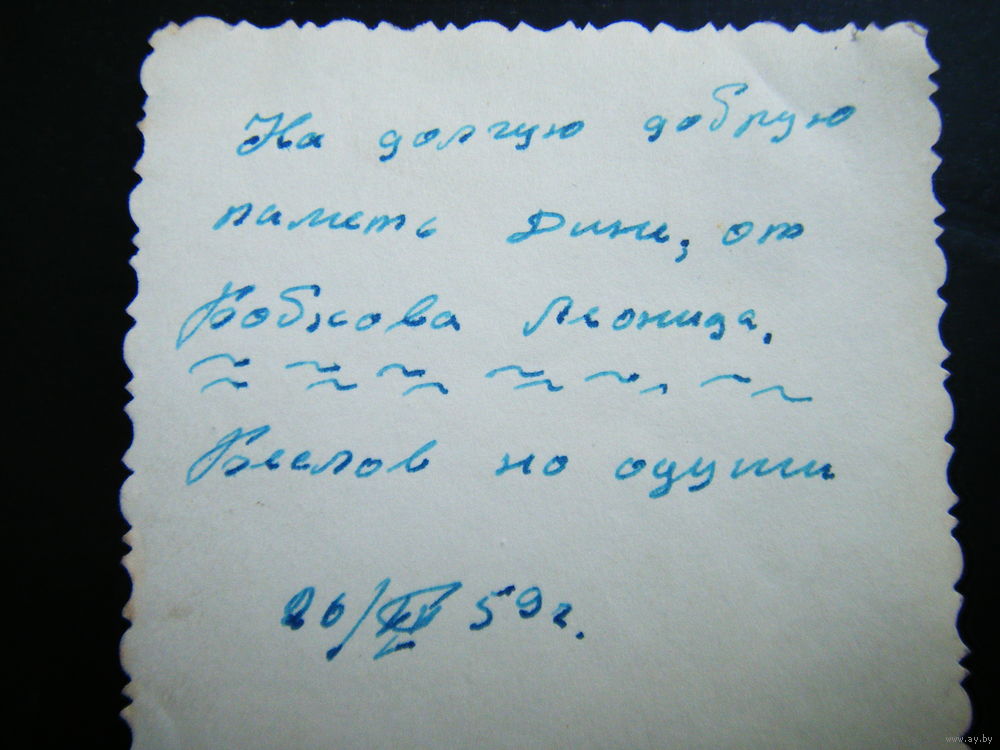 На долгую добрую
память Дине, от
Бобкова Леонида.
Без слов но от души
26/IV 59 г.
www.ay.by